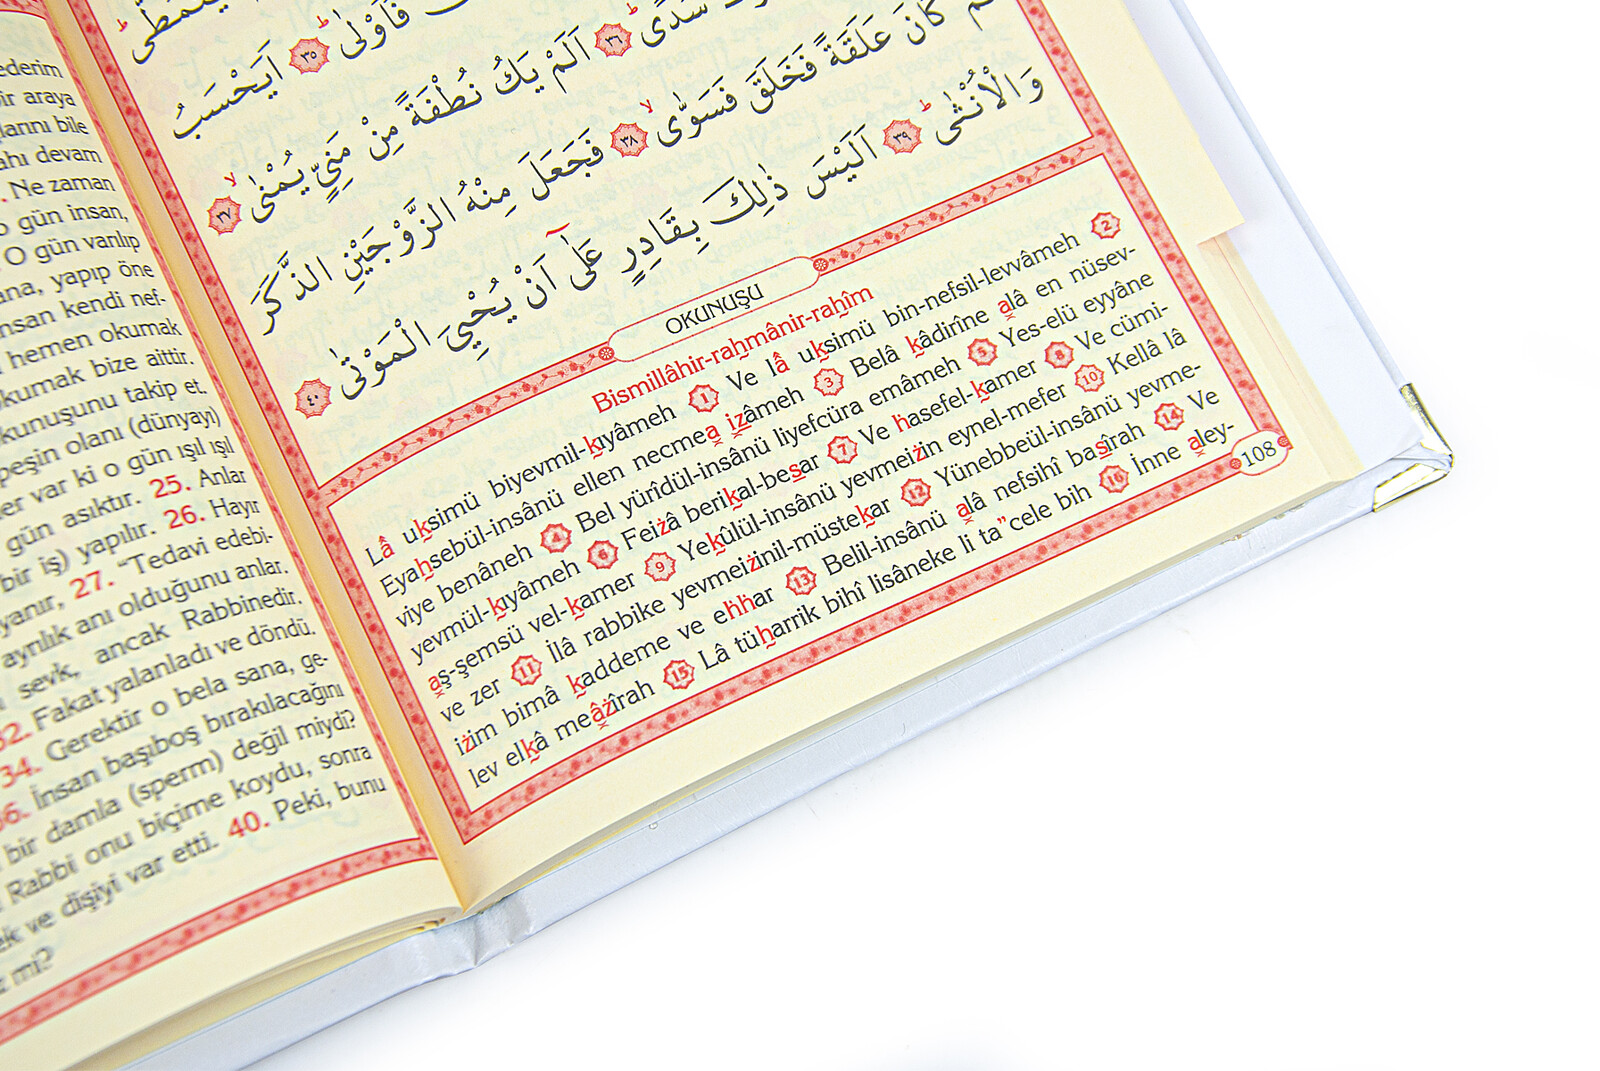 ederim
bir araya
larını bile
ahı devam
. Ne zaman
o gün insan,
. O gün varılıp
ana, yapıp öne
nsan kendi nef-
hemen okumak
kumak bize aittir.
kunuşunu takip et.
peşin olanı (dünyayı)
er var ki o gün ışıl ışıl
gün asıktır. 25. Anlar
bir iş) yapılır. 26. Hayır
yanır, 27. “Tedavi edebi-
ayrılık anı olduğunu anlar.
sevk, ancak Rabbinedir.
32. Fakat yalanladı ve döndü.
34. Gerektir o bela sana, ge-
36. İnsan başıboş bırakılacağını
bir damla (sperm) değil miydi?
Rabbi onu biçime koydu, sonra
ek ve dişiyi var etti. 40. Peki, bunu
mi?
فَاَوْلٰىۙ ﴿٣٥﴾ اَيَحْسَبُ
سُدًىۜ ﴿٣٦﴾ اَلَمْ يَكُ نُطْفَةً مِنْ مَنِيٍّ يُمْنٰىۙ ﴿٣٧﴾
كَانَ عَلَقَةً فَخَلَقَ فَسَوّٰىۙ ﴿٣٨﴾ فَجَعَلَ مِنْهُ الزَّوْجَيْنِ الذَّكَرَ
وَالْاُنْثٰىۜ ﴿٣٩﴾ اَلَيْسَ ذٰلِكَ بِقَادِرٍ عَلٰٓى اَنْ يُحْيِيَ الْمَوْتٰى ﴿٤٠﴾
OKUNUŞU
Bismillâhir-rahmânir-rahîm
Lâ uksimü biyevmil-kıyâmeh 1 Ve lâ uksimü bin-nefsil-levvâmeh 2
Eyahsebül-insânü ellen necmea izâmeh 3 Belâ kâdirîne alâ en nüsev-
viye benâneh 4 Bel yürîdül-insânü liyefcüra emâmeh 5 Yes-elü eyyâne
yevmül-kıyâmeh 6 Feiżâ berikal-besar 7 Ve hasefel-kamer 8 Ve cümi-
aş-şemsü vel-kamer 9 Yekûlül-insânü yevmeiżin eynel-mefer 10 Kellâ lâ
ve zer 11 İlâ rabbike yevmeiżinil-müstekar 12 Yünebbeül-insânü yevme-
iżim bimâ kaddeme ve ehhar 13 Belil-insânü alâ nefsihî basîrah 14 Ve
lev elkâ meâżîrah 15 Lâ tüharrik bihî lisâneke li ta”cele bih 16 İnne aley-
108